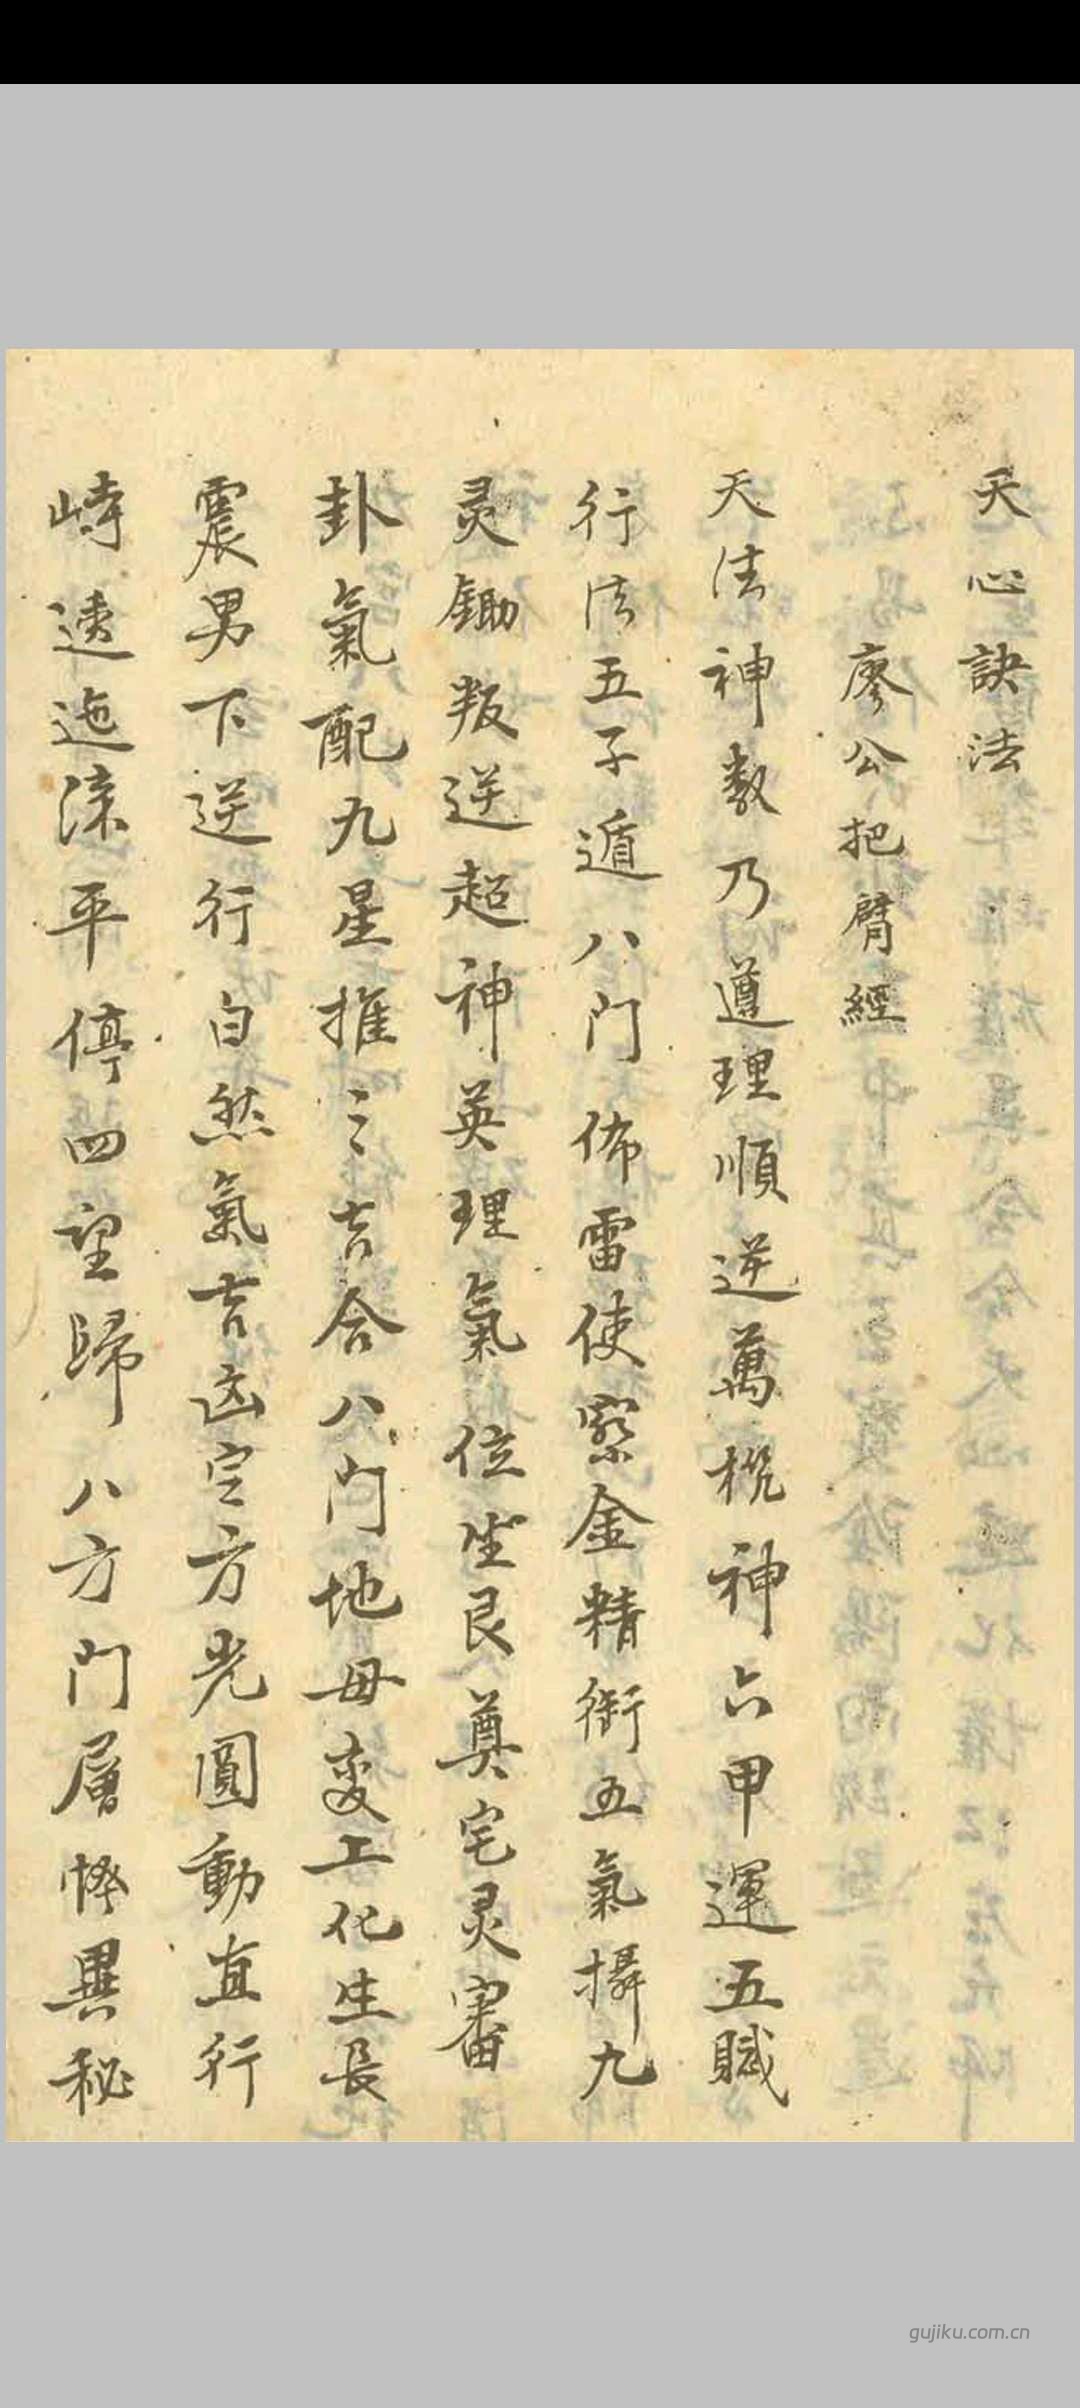 天心訣法
廖公把臂經
天法神数乃遵理順逆萬梲神六甲運五賊
行法五子遁八門佈雷使察金精衔五氣攝九
灵鋤叛逆超神英理氣位坐艮奠宅灵審
卦氣配九星推三吉合八门地母变工化生長
震男下逆行自然氣吉凶定方光圓動直行
峙透迤深平停四望歸八方門層異秘
gujiku.com.cn